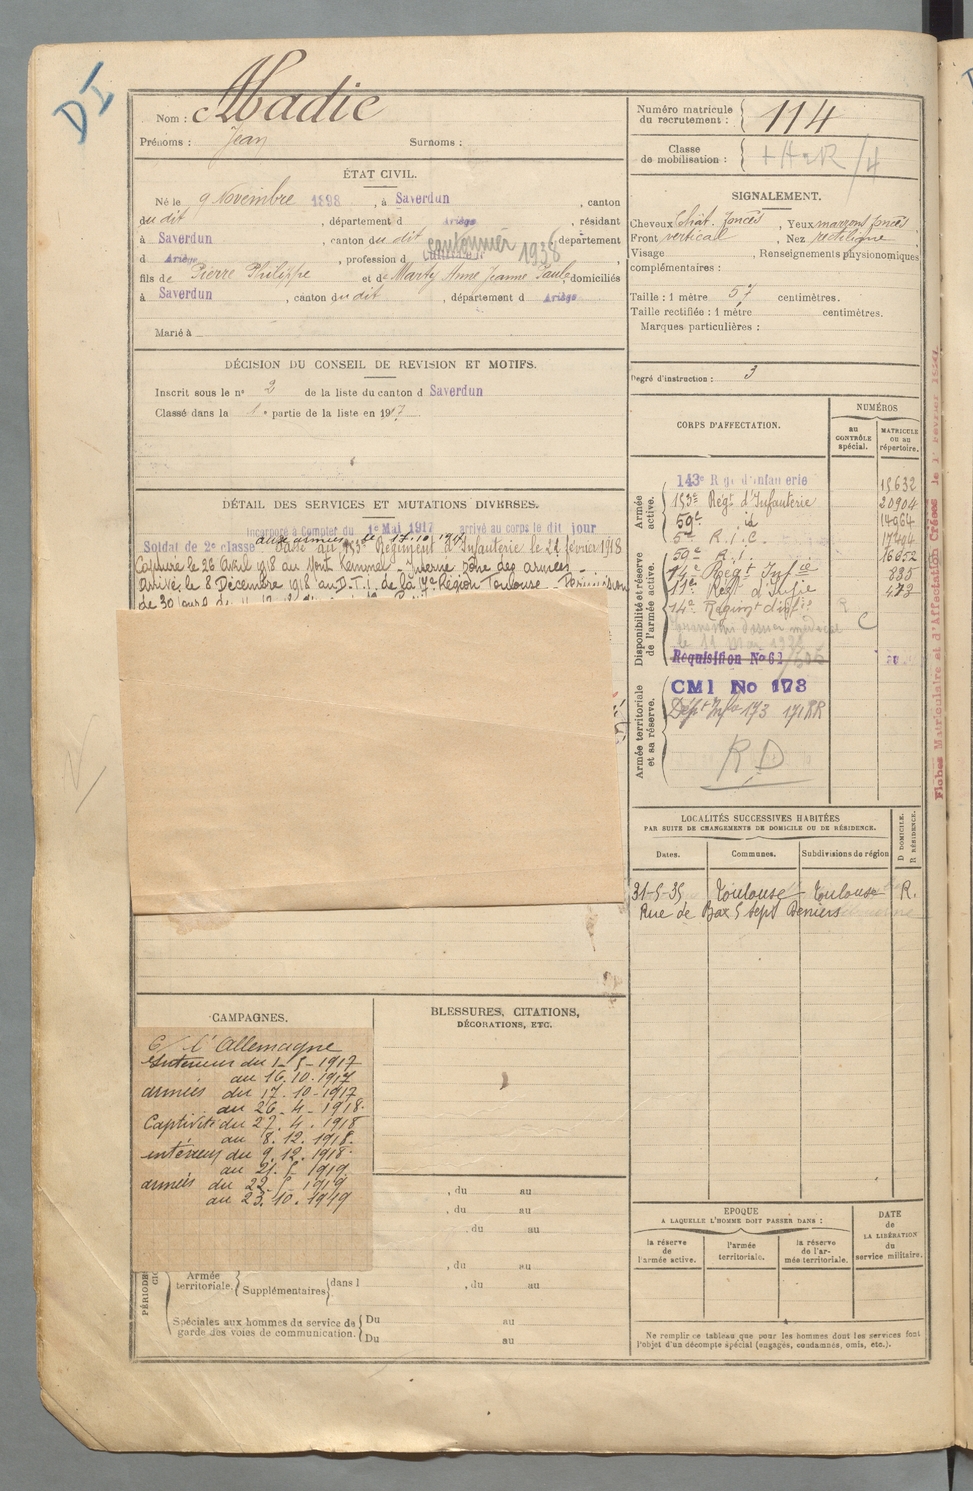 DI
Nom : Madic
Prénoms : Jean Surnoms :
ÉTAT CIVIL.
Né le 9 Novembre 1898, à Saverdun, canton
du dit, département d Ariège, résidant
à Saverdun, canton du dit, département
cantonnier 1938
d Ariège, profession d
fils de Pierre Philippe et de Marty Anne Jeanne Paule, domiciliés
à Saverdun, canton du dit, département d Ariège
Marié à
DÉCISION DU CONSEIL DE REVISION ET MOTIFS.
Inscrit sous le n° 2 de la liste du canton d Saverdun
Classé dans la 1e partie de la liste en 1917
DÉTAIL DES SERVICES ET MUTATIONS DIVERSES.
Incorporé à Compter du 1e Mai 1917 arrivé au corps le dit jour
aux armées le 17.10.1917
Soldat de 2e classe Passé au 153e Régiment d'Infanterie le 21 février 1918
Capturé le 26 avril 1918 au Mont Kemmel - Interné
Arrivé le 8 Décembre 1918 au D.T.I. de la 17e Région Toulouse - Permission
de 30 jours
CAMPAGNES.
C/ l'Allemagne
Intérieur du 1-5-1917
au 16.10.1917
armées du 17.10-1917
au 26-4-1918.
Captivité du 27.4.1918
au 8.12.1918.
intérieur du 9.12.1918.
au 21.5.1919
armées du 22.5.1919
au 23.10.1919
BLESSURES, CITATIONS,
DÉCORATIONS, ETC.
, du au
, du au
, du au
, du au
PÉRIODES
Armée territoriale. Supplémentaires dans l , du au
Spéciales aux hommes du service de garde des voies de communication. Du au
Du au
Numéro matricule du recrutement : 114
Classe de mobilisation :
SIGNALEMENT.
Cheveux Chât. foncés, Yeux marrons foncés
Front vertical, Nez rectiligne
Visage , Renseignements physionomiques
complémentaires :
Taille : 1 mètre 57 centimètres.
Taille rectifiée : 1 mètre centimètres.
Marques particulières :
Degré d'instruction : 3
CORPS D'AFFECTATION.
NUMÉROS
au CONTRÔLE spécial.
MATRICULE ou au répertoire.
Armée active.
143e Rgt d'Infanterie 18632
153e Regt d'Infanterie 20904
59e id 14964
5e R.I.C. 17494
Disponibilité et réserve de l'armée active.
59e R.I. 16652
14e Regt Infie 235
11e Regt d'Infie 473
14e Régimt d'Infie
C
Réquisition No 61
Armée territoriale et sa réserve.
CMI No 173
Dépt Infie 173
RD
LOCALITÉS SUCCESSIVES HABITÉES
PAR SUITE DE CHANGEMENTS DE DOMICILE OU DE RÉSIDENCE.
Dates. Communes. Subdivisions de région D DOMICILE. R RÉSIDENCE.
31-5-35 Toulouse Toulouse R.
Rue de Bax 5 sept Deniers
EPOQUE
A LAQUELLE L'HOMME DOIT PASSER DANS :
la réserve de l'armée active.
l'armée territoriale.
la réserve de l'armée territoriale.
DATE de LA LIBÉRATION du service militaire.
Ne remplir ce tableau que pour les hommes dont les services font
l'objet d'un décompte spécial (engagés, condamnés, omis, etc.).
Fiches Matriculaire et d'Affectation Créées le